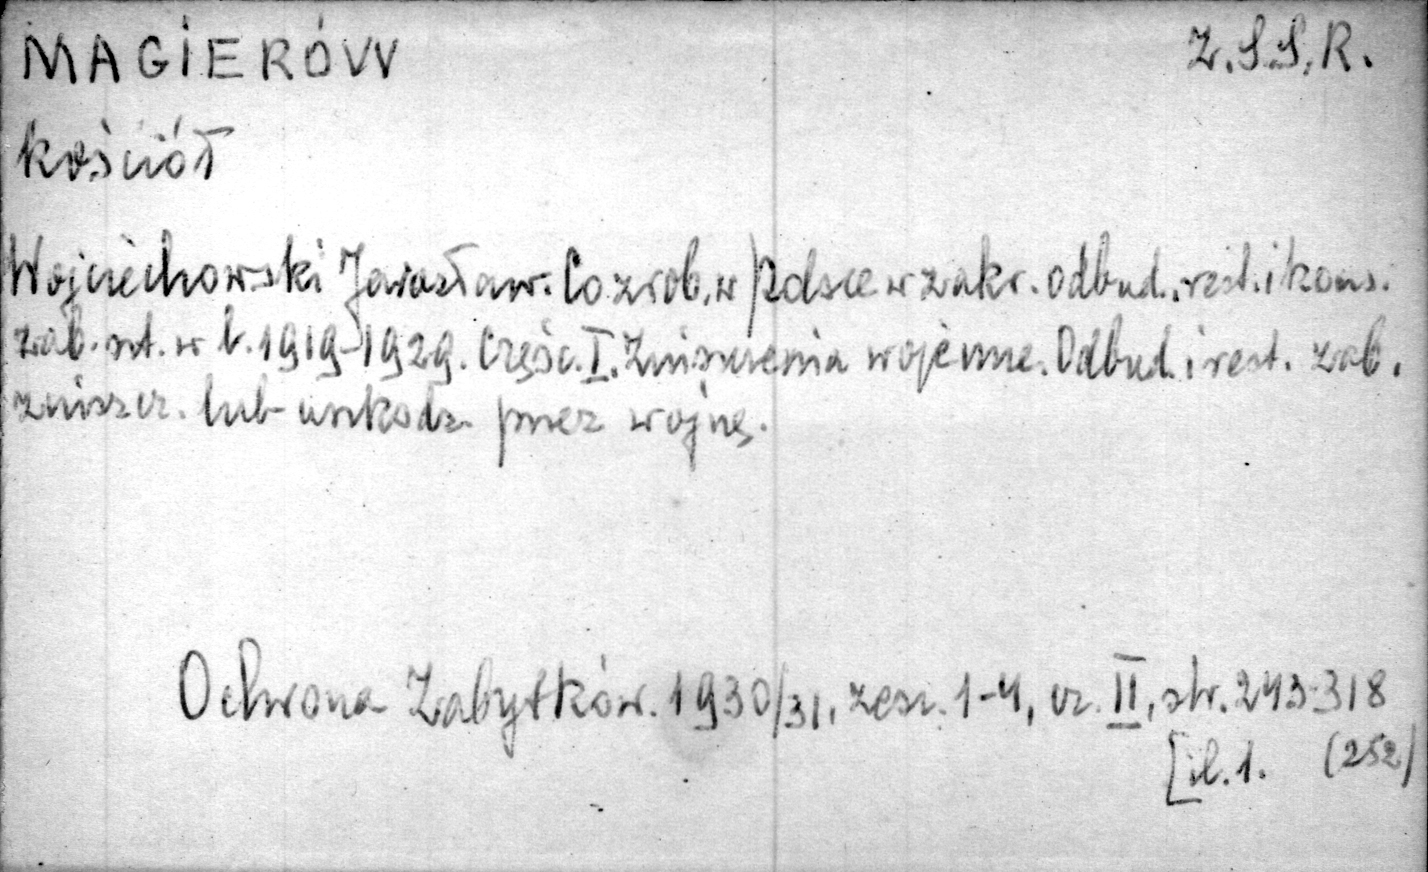 MAGIERÓW Z.S.S.R.
kościół
Wojciechowski Jarosław. Co zrob. w Polsce w zakr. odbud., rest. i kons.
zab. szt. w l. 1919-1929. Częśc. I. Zniszczenia wojenne. Odbud. i rest. zab.
zniszcz. lub uszkodz. przez wojnę.
Ochrona Zabytków. 1930/31, zesz. 1-4, cz. II, str. 243-318
[il. 1. (252)